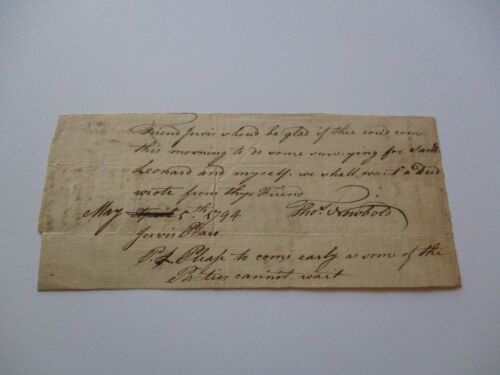 Friend Jervis should be glad if thee could come
this morning to do some surveying for
Leonard and myself. we shall want a Deed
wrote from thy Friend
May April 5th 1794 Thos. Newbold
Jervis Pharo
P.S. Please to come early as some of the
Parties cannot wait